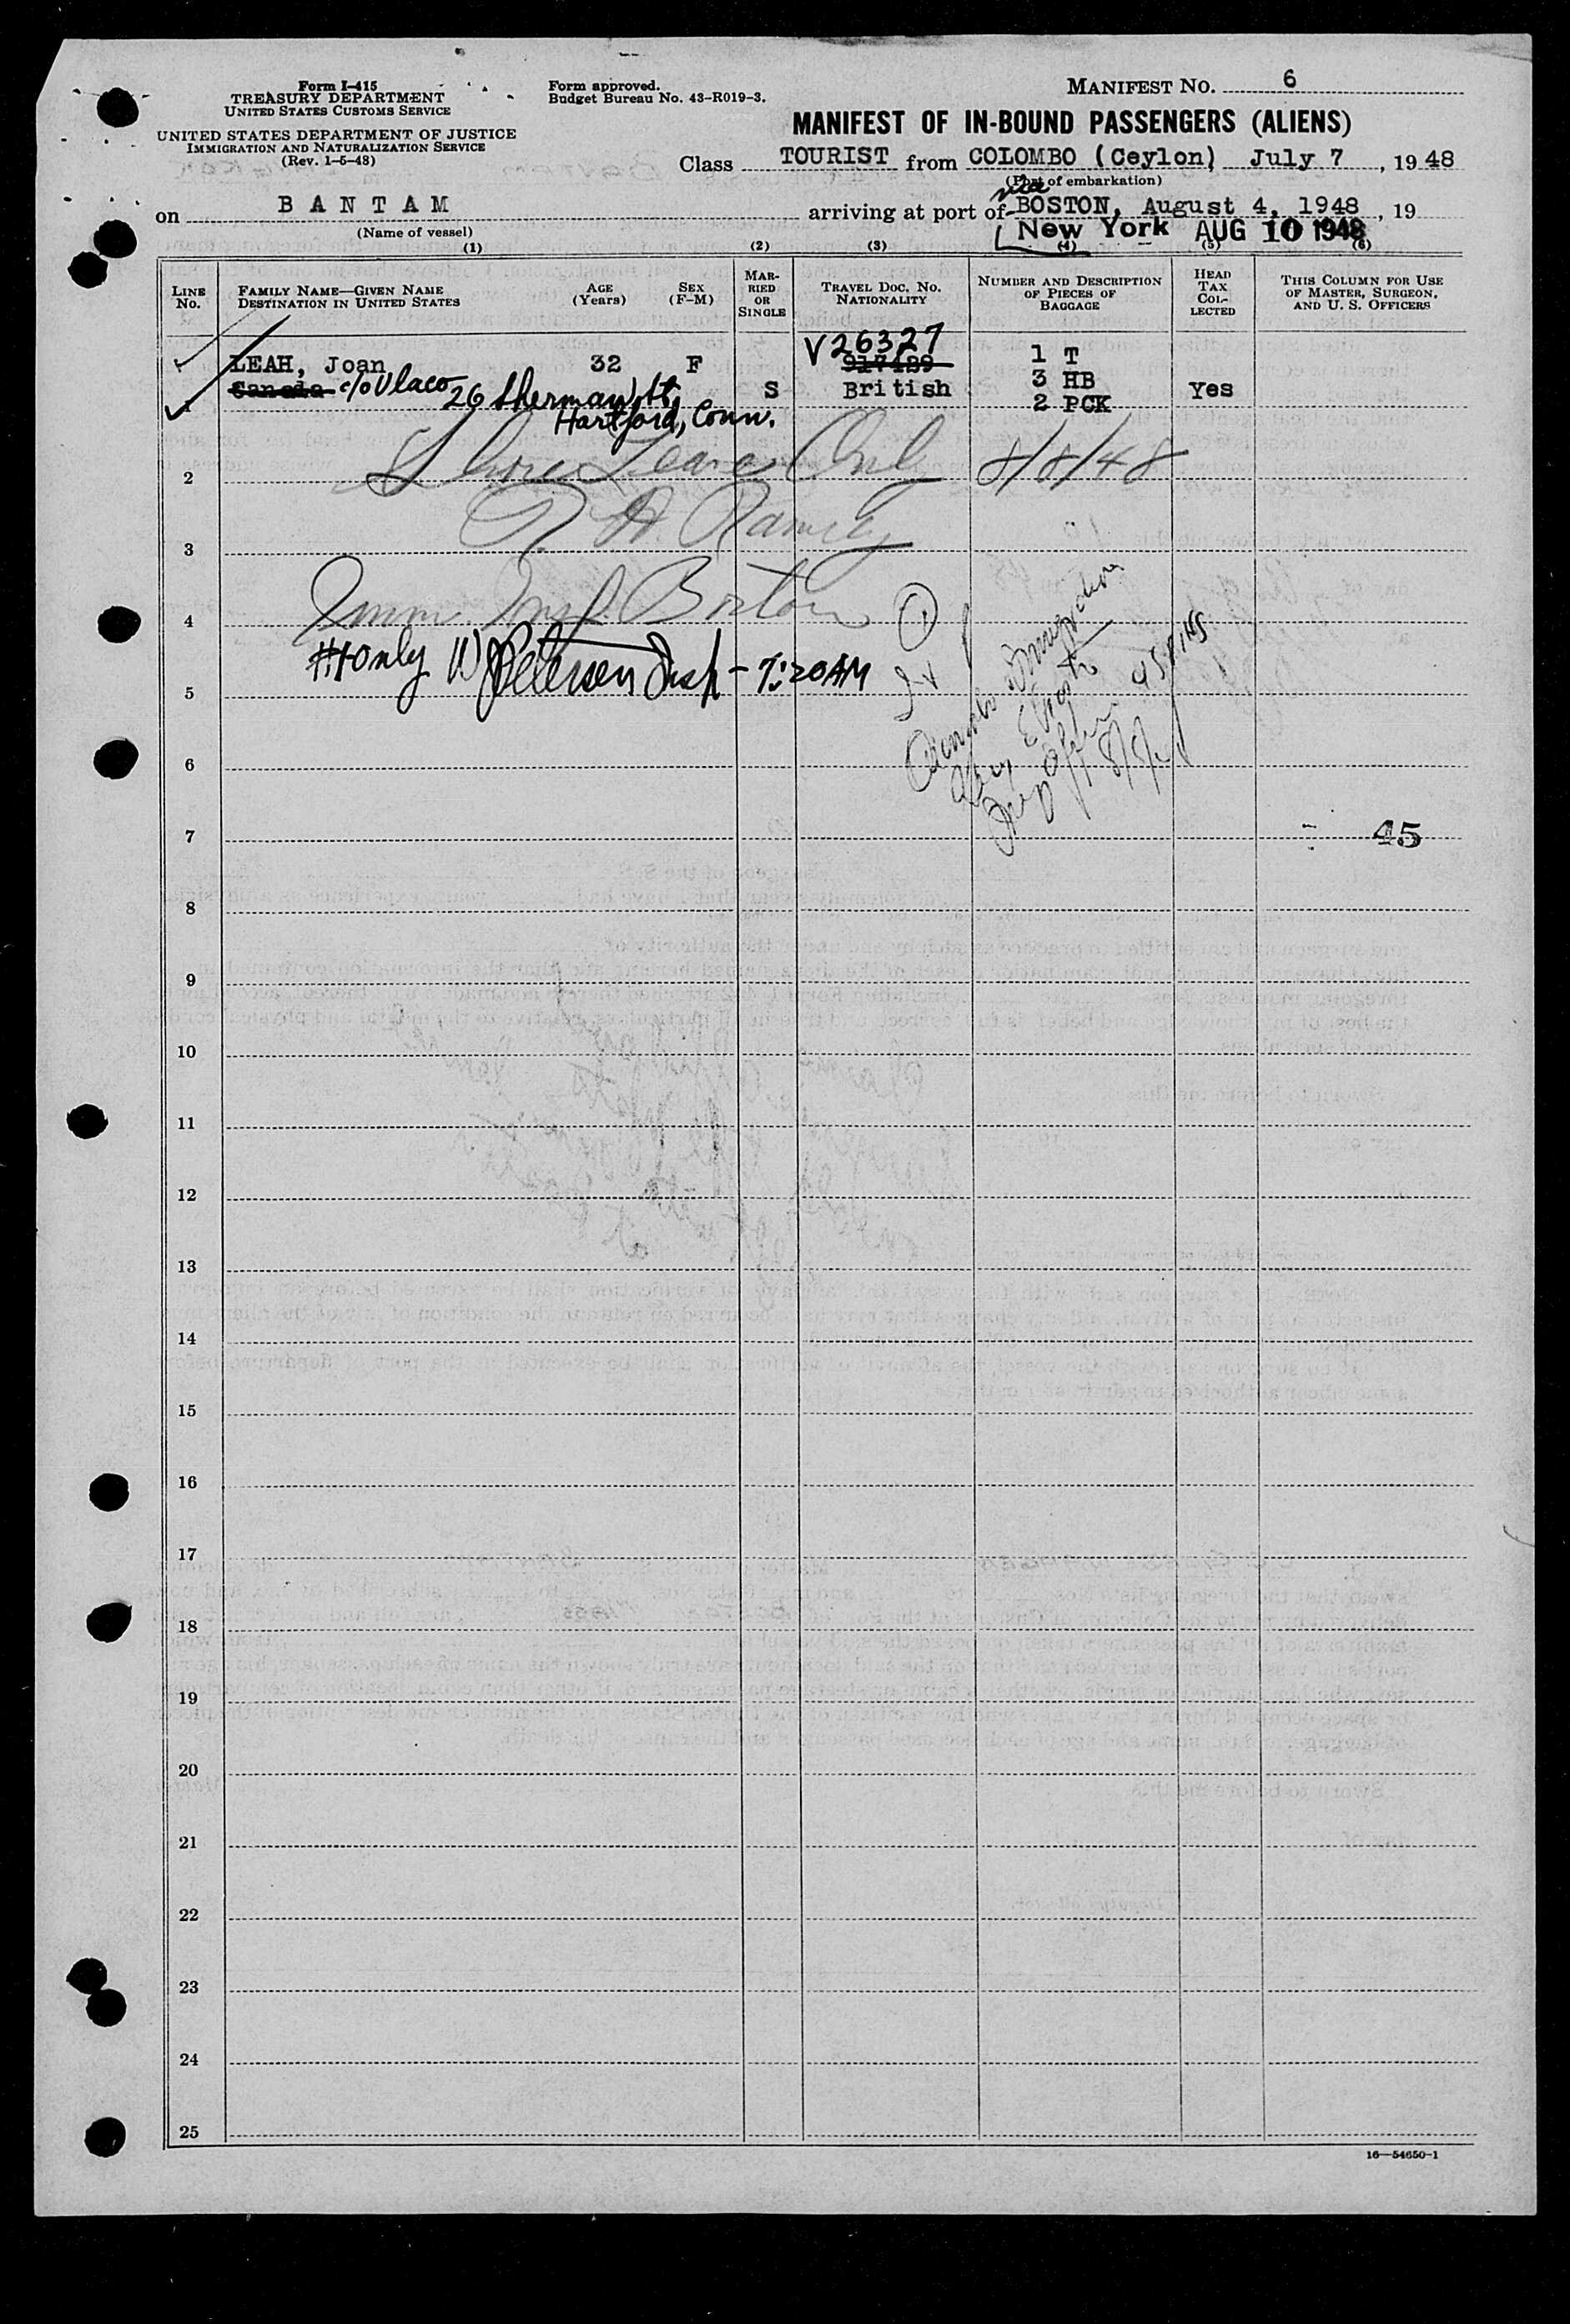 Form I-415
TREASURY DEPARTMENT
UNITED STATES CUSTOMS SERVICE
UNITED STATES DEPARTMENT OF JUSTICE
IMMIGRATION AND NATURALIZATION SERVICE
(Rev. 1-5-48)
Form approved.
Budget Bureau No. 43-R019-3.
MANIFEST NO. 6
MANIFEST OF IN-BOUND PASSENGERS (ALIENS)
Class TOURIST from COLOMBO (Ceylon) July 7, 1948
(Port of embarkation)
on BANTAM arriving at port of via BOSTON, August 4, 1948, 19
(Name of vessel)
New York AUG 10 1948
(1) (2) (3) (4) (5) (6)
LINE No. FAMILY NAME—GIVEN NAME DESTINATION IN UNITED STATES AGE (Years) SEX (F-M) MARRIED OR SINGLE TRAVEL DOC. NO. NATIONALITY NUMBER AND DESCRIPTION OF PIECES OF BAGGAGE HEAD TAX COLLECTED THIS COLUMN FOR USE OF MASTER, SURGEON, AND U. S. OFFICERS
V26327
LEAH, Joan 32 F 1 T
Canada c/o Vlaco 26 Sherman St, S British 3 HB Yes
Hartford, Conn. 2 PCK
2 Shore Leave Only 8/8/48
R. H. Ramsey
3
Imm. Insp. Boston
4
#1 only W Petersen Insp - 7:20AM
5
6
7 45
8
9
10
11
12
13
14
15
16
17
18
19
20
21
22
23
24
25
16—54650-1